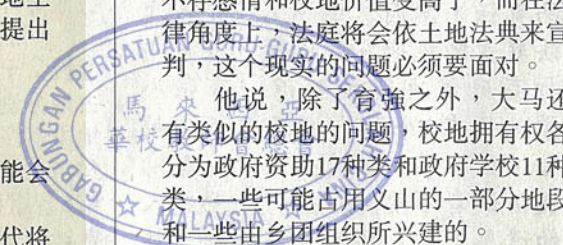 提出
能会
代将
不存感情和校地价值变高了，而在法
律角度上，法庭将会依土地法典来宣
判，这个现实的问题必须要面对。
他说，除了育强之外，大马还
有类似的校地的问题，校地拥有权各
分为政府资助17种类和政府学校11种
类，一些可能占用义山的一部分地段
和一些由乡团组织所兴建的。
GABUNGAN PERSATUAN GURU-GURU
馬來西亞
華校教師會總會
MALAYSIA